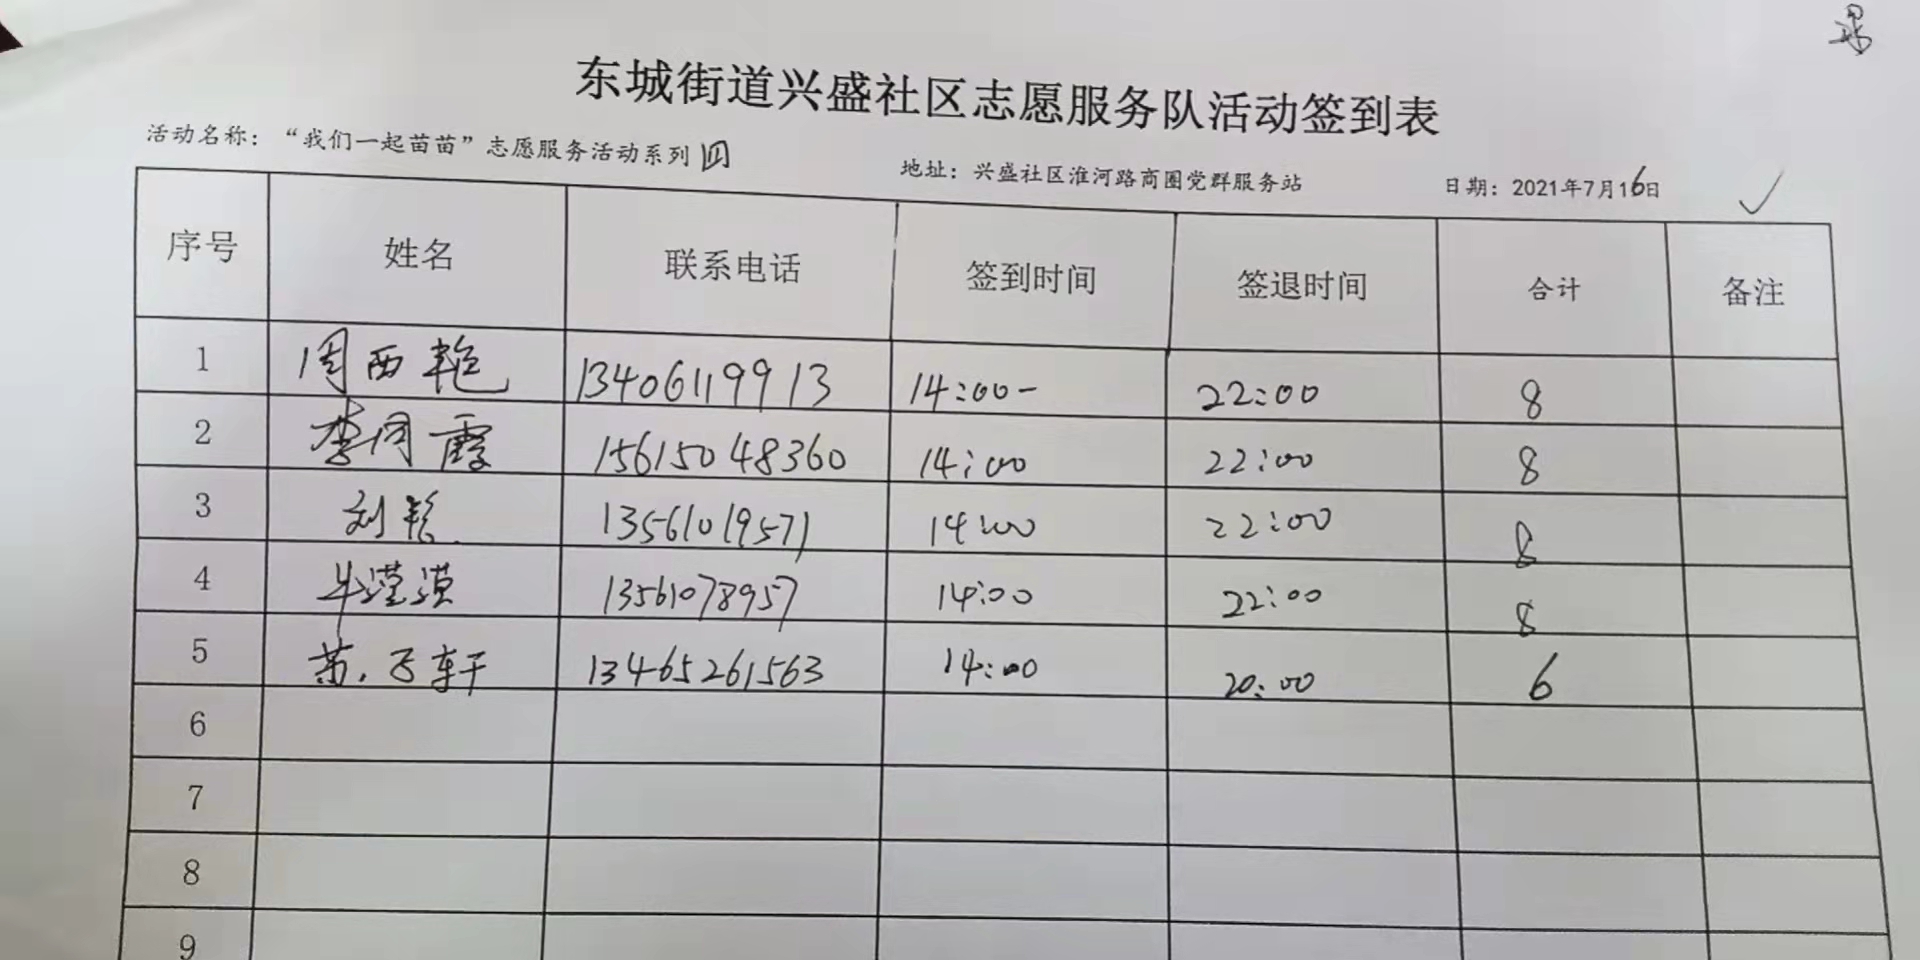 东城街道兴盛社区志愿服务队活动签到表
活动名称：“我们一起苗苗”志愿服务活动系列四 地址：兴盛社区淮河路商圈党群服务站 日期：2021年7月16日
序号 姓名 联系电话 签到时间 签退时间 合计 备注
1 周西艳 13406119913 14:00- 22:00 8
2 李同霞 15615048360 14:00 22:00 8
3 刘艳 13561019571 14:00 22:00 8
4 牛 13561078957 14:00 22:00 8
5 苏子轩 13465261563 14:00 20:00 6
6
7
8
9